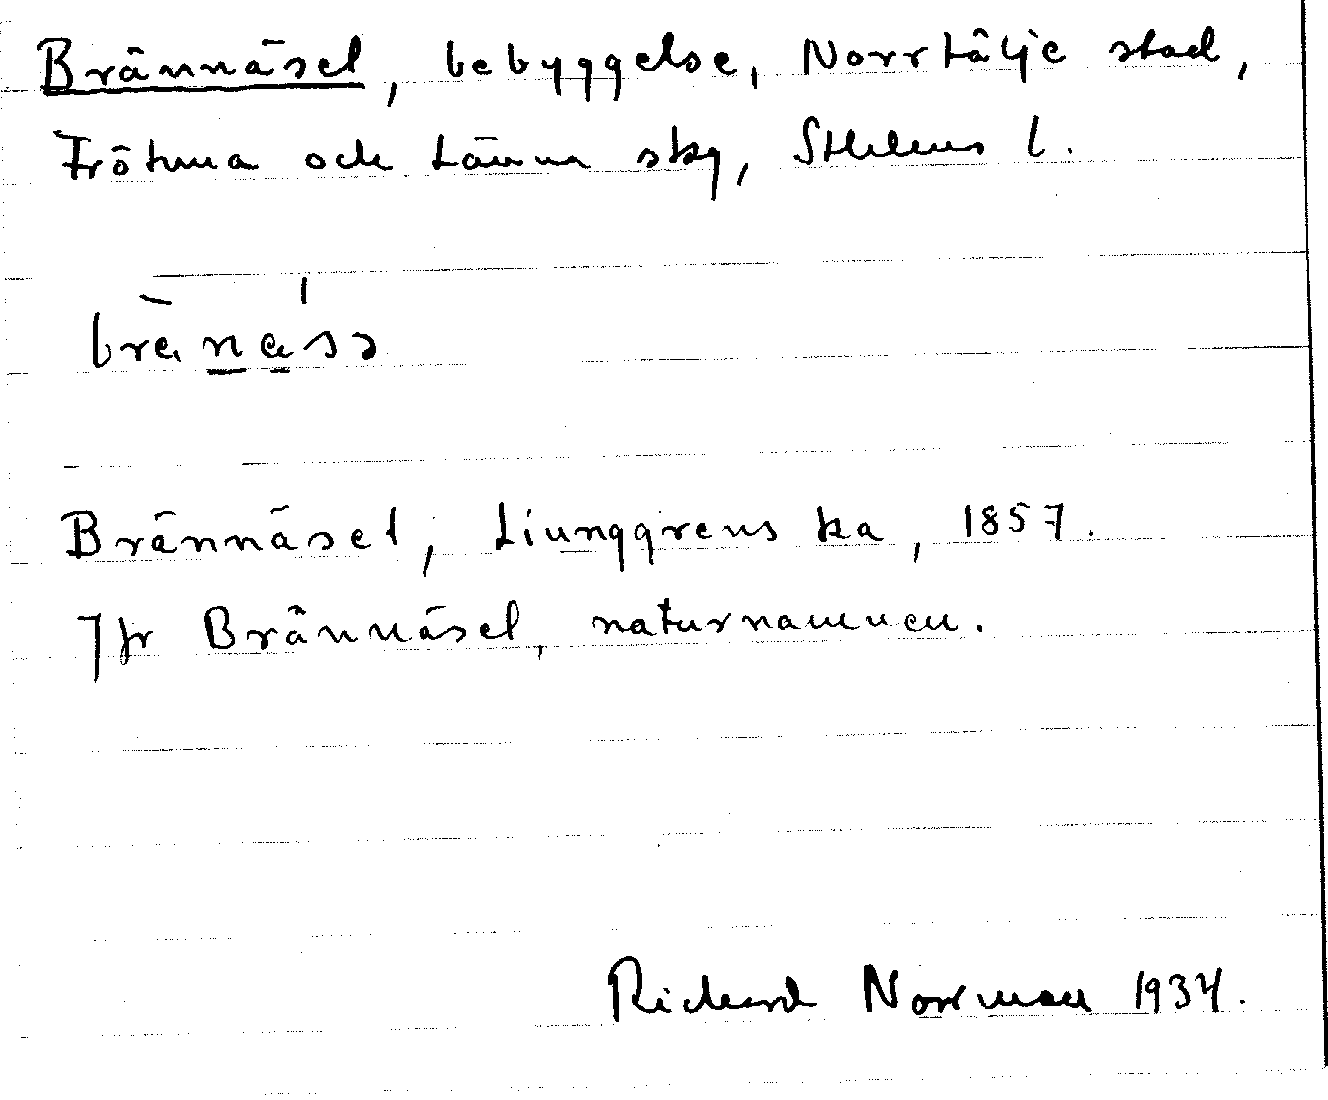 Brännäset, bebyggelse, Norrtälje stad,
Frötuna och Länna skg, Sthlms l.
Brännäset, Ljunggrens ka, 1857.
Jfr Brännäset, naturnamnen.
Richard Norrman 1934.